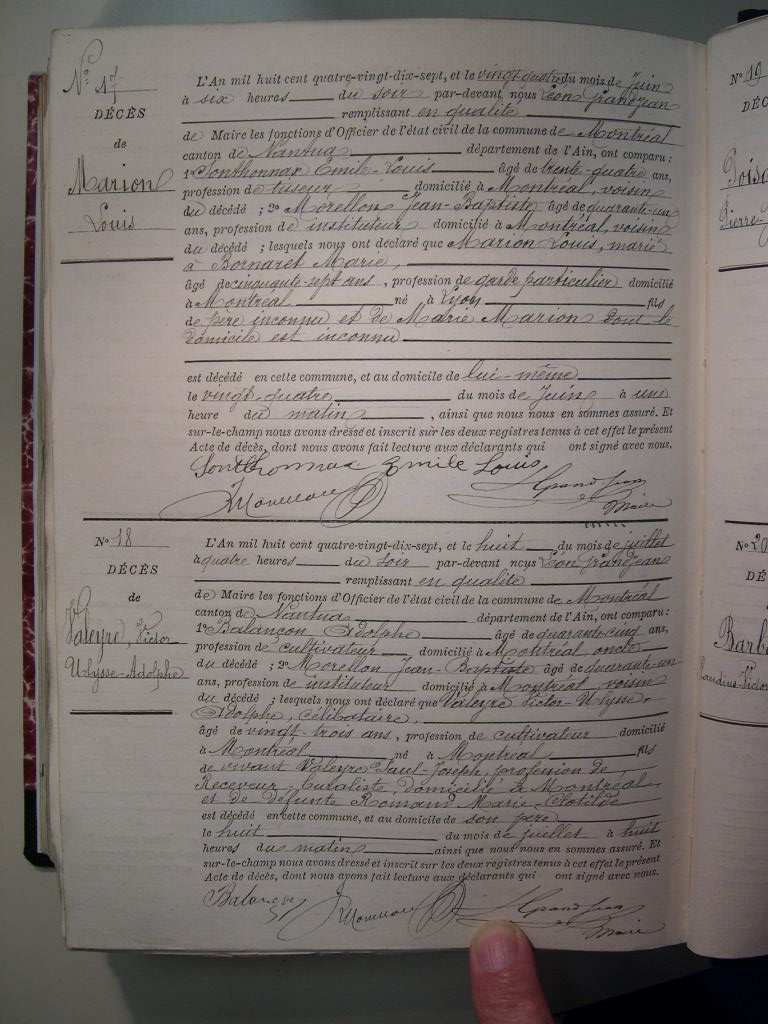 N° 17
DÉCÈS
de
Marion
Louis
L'An mil huit cent quatre-vingt-dix-sept, et le vingt quatre du mois de Juin
à six heures du soir par-devant nous Léon Grandjean
remplissant en qualité
de Maire les fonctions d'Officier de l'état civil de la commune de Montréal
canton de Nantua département de l'Ain, ont comparu :
1° Sonthonnax Emile-Louis âgé de trente-quatre ans,
profession de tisseur domicilié à Montréal, voisin
du décédé ; 2° Morellon Jean-Baptiste âgé de quarante-un
ans, profession de instituteur domicilié à Montréal, voisin
du décédé ; lesquels nous ont déclaré que Marion Louis, marié
à Bornaret Marie,
âgé de cinquante-sept ans, profession de garde particulier domicilié
à Montréal né à Lyon fils
de père inconnu et de Marie Marion dont le
domicile est inconnu
est décédé en cette commune, et au domicile de lui-même
le vingt-quatre du mois de Juin à une
heure du matin, ainsi que nous nous en sommes assuré. Et
sur-le-champ nous avons dressé et inscrit sur les deux registres tenus à cet effet le présent
Acte de décès, dont nous avons fait lecture aux déclarants qui ont signé avec nous.
Sonthonnax Emile Louis,
L Grandjean
Maire
N° 18
DÉCÈS
de
Valeyre, Victor
Ulysse-Adolphe
L'An mil huit cent quatre-vingt-dix-sept, et le huit du mois de juillet
à quatre heures du soir par-devant nous Léon Grandjean
remplissant en qualité
de Maire les fonctions d'Officier de l'état civil de la commune de Montréal
canton de Nantua département de l'Ain, ont comparu :
1° Balançon Adolphe âgé de quarante-cinq ans,
profession de cultivateur domicilié à Montréal oncle
du décédé ; 2° Morellon Jean-Baptiste âgé de quarante-un
ans, profession de instituteur domicilié à Montréal voisin
du décédé ; lesquels nous ont déclaré que Valeyre Victor-Ulysse-
Adolphe, célibataire,
âgé de vingt-trois ans, profession de cultivateur domicilié
à Montréal né à Montréal fils
de vivant Valeyre Paul-Joseph, profession de
Receveur, buraliste, domicilié à Montréal
et de défunte Romand Marie-Clotilde
est décédé en cette commune, et au domicile de son père
le huit du mois de juillet à huit
heures du matin ainsi que nous nous en sommes assuré. Et
sur-le-champ nous avons dressé et inscrit sur les deux registres tenus à cet effet le présent
Acte de décès, dont nous avons fait lecture aux déclarants qui ont signé avec nous.
L Grandjean
Maire
N° 19
N° 20